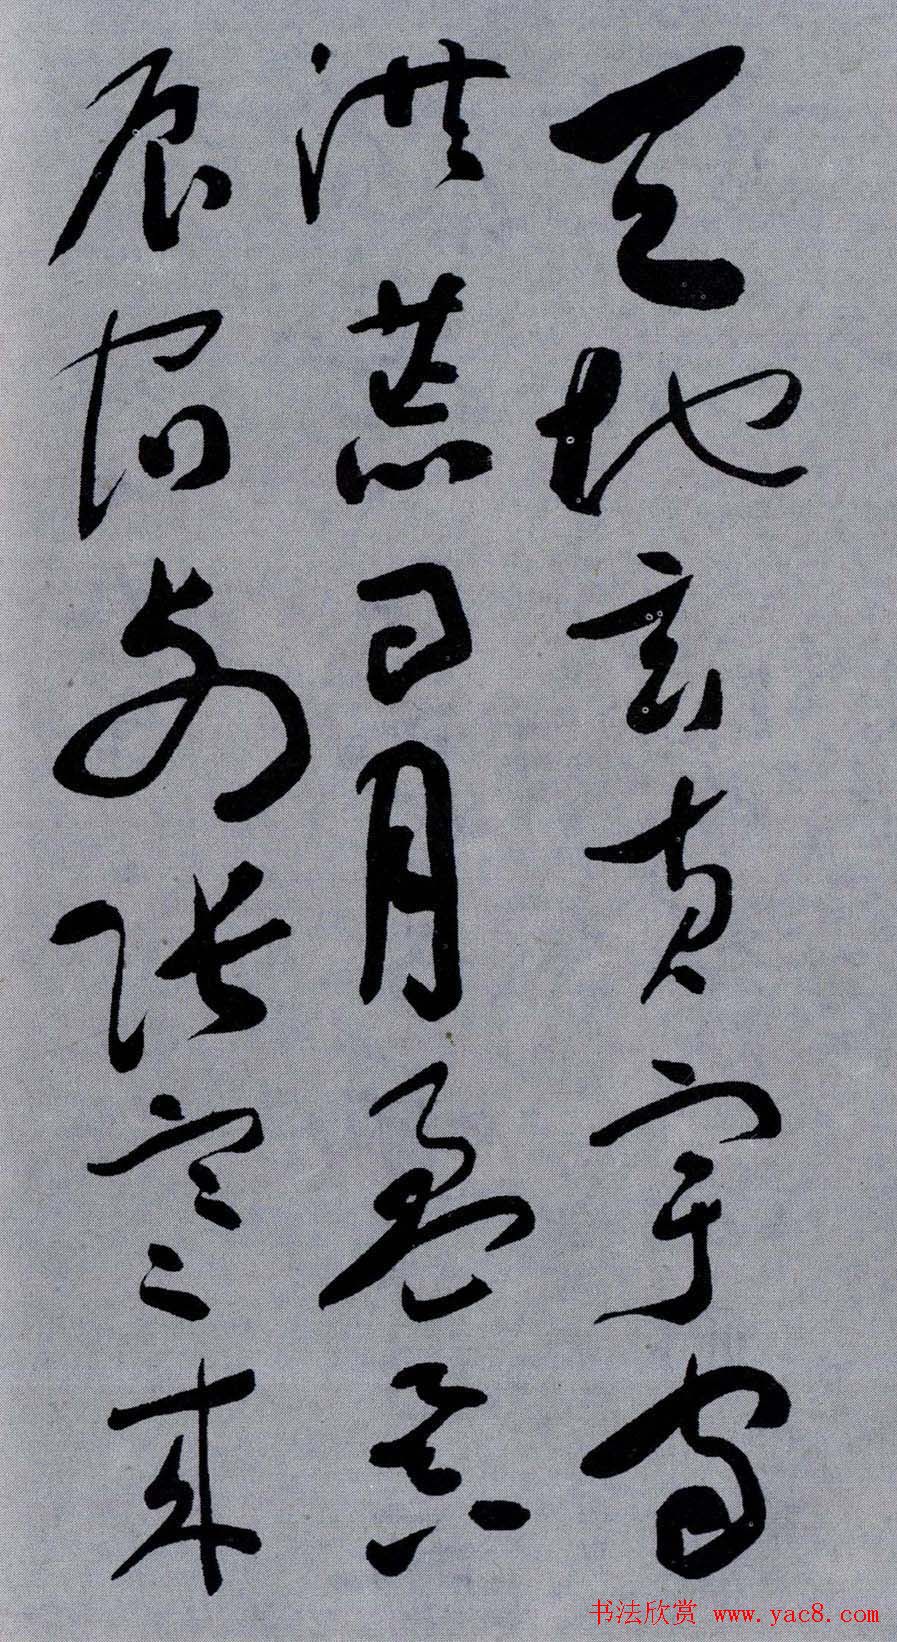 天地玄黄宇宙
洪荒日月盈昃
辰宿列張寒来
书法欣赏 www.yac8.com